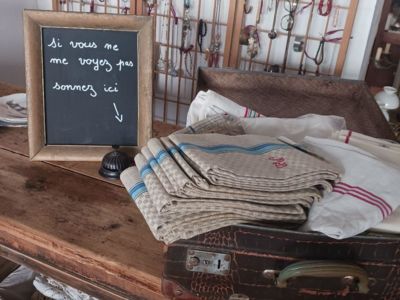 si vous ne
me voyez pas
sonnez ici